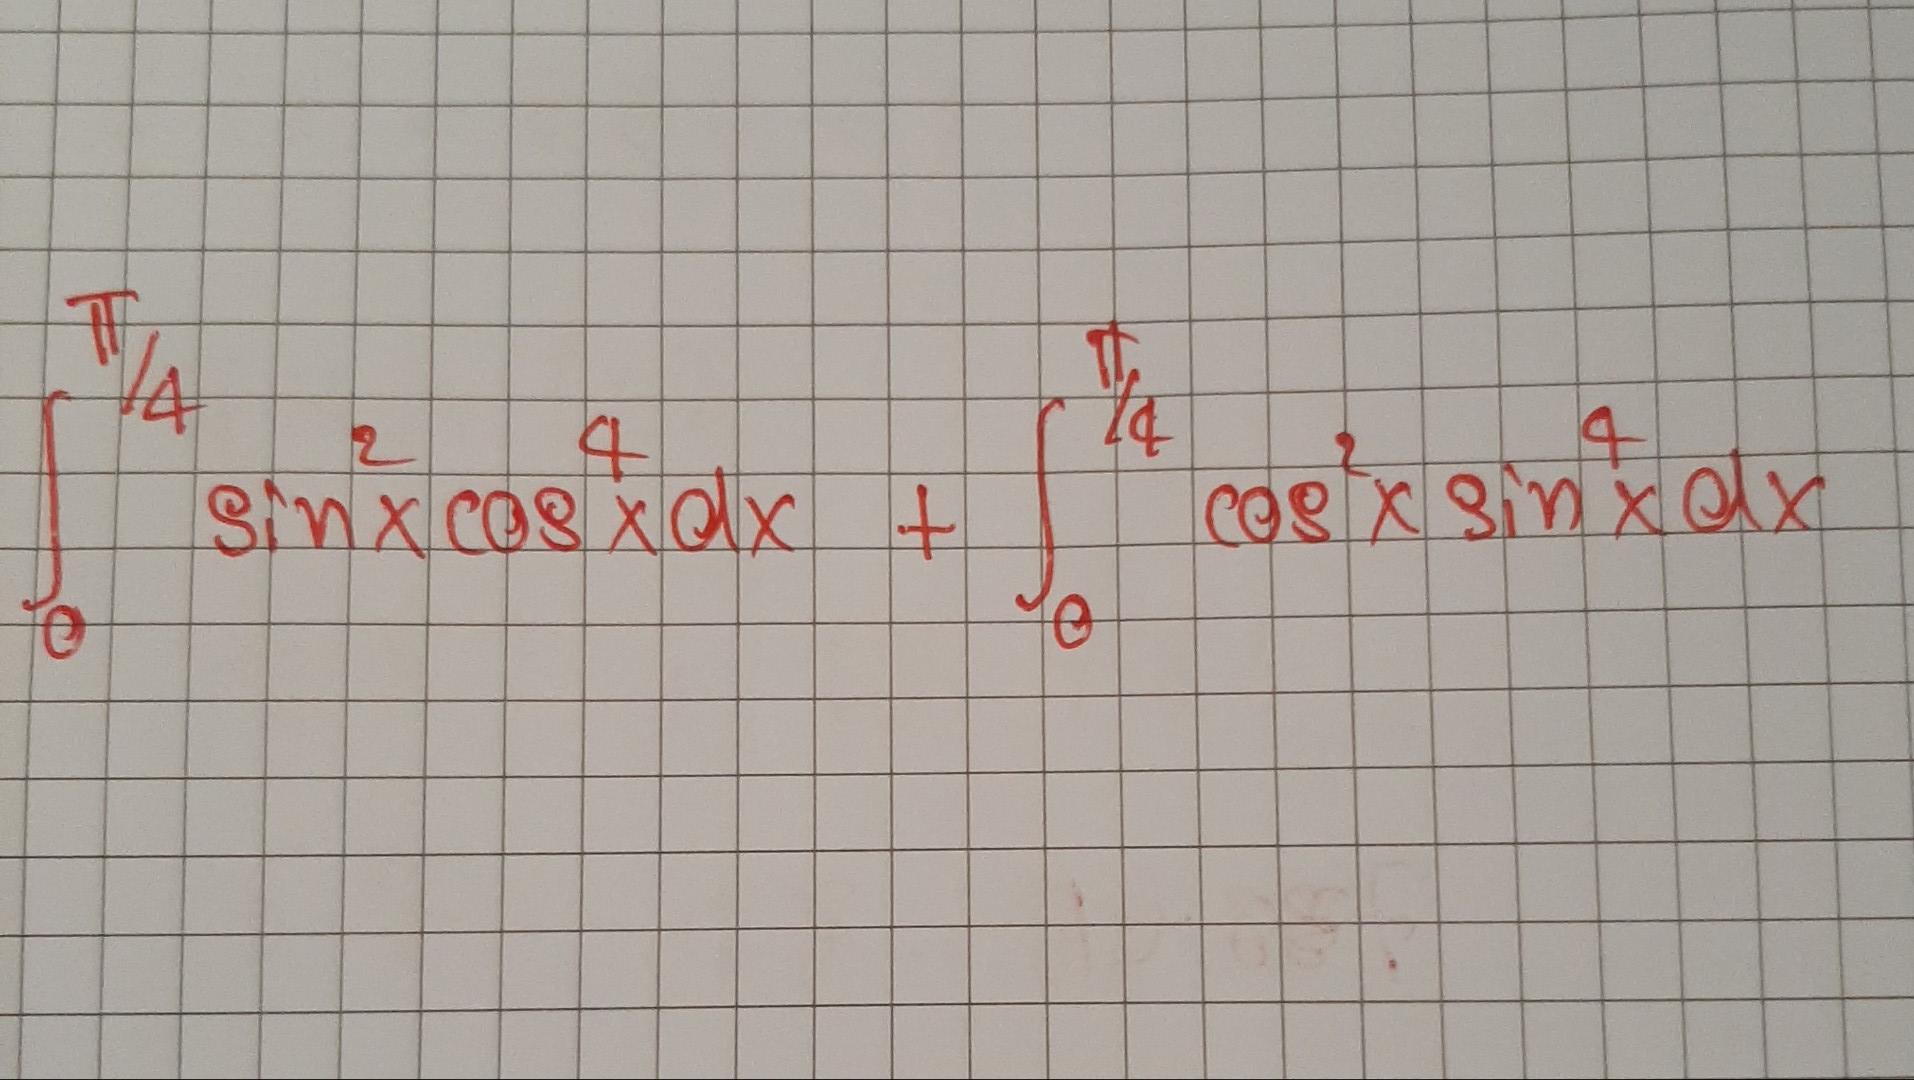 ∫₀^(π/4) sin²x cos⁴x dx + ∫₀^(π/4) cos²x sin⁴x dx